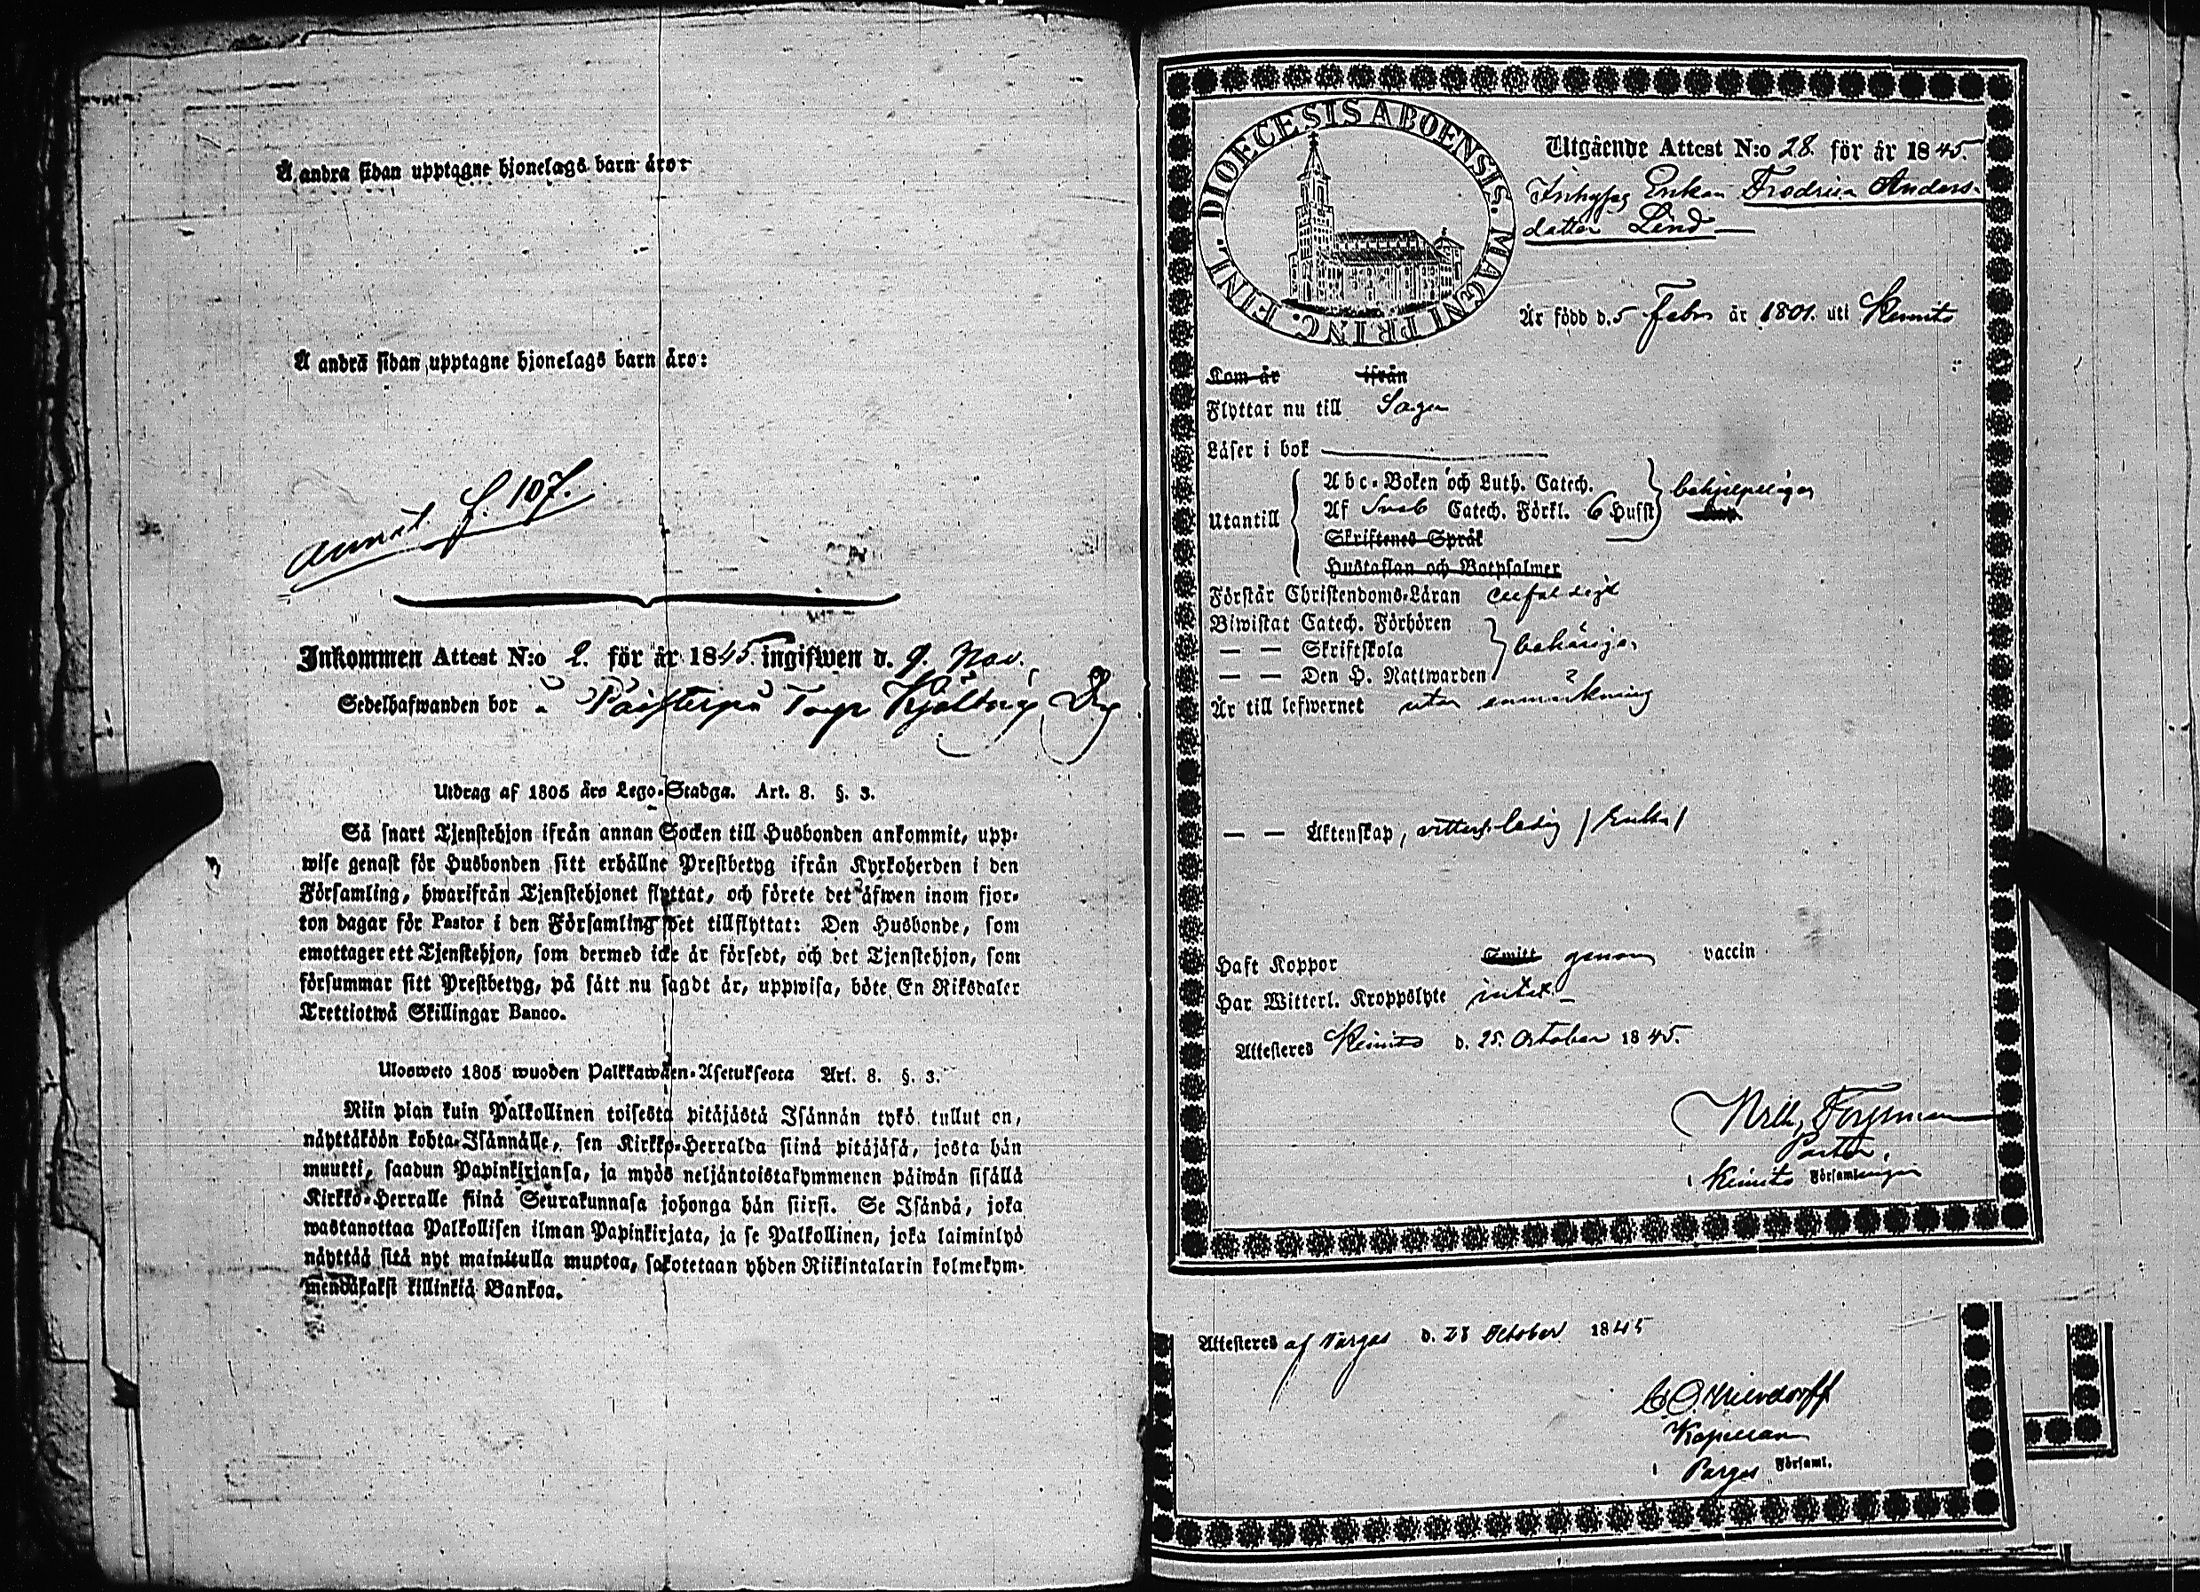 Å andra sidan upptagne hjonelags barn äro:
Å andra sidan upptagne hjonelags barn äro:
annot. f. 107.
Inkommen Attest N:o 2. för år 1845. ingifwen d. 9. Nov.
Sedelhafwanden bor å
Utdrag af 1805 års Lego-Stadga. Art. 8. §. 3.
Så snart Tjenstehjon ifrån annan Socken till Husbonden ankommit, upp-
wise genast för Husbonden sitt erhållne Prestbetyg ifrån Kyrkoherden i den
Församling, hwarifrån Tjenstehjonet flyttat, och förete det äfwen inom fjor-
ton dagar för Pastor i den Församling det tillflyttat: Den Husbonde, som
emottager ett Tjenstehjon, som dermed icke är försedt, och det Tjenstehjon, som
försummar sitt Prestbetyg, på sätt nu sagdt är, uppwisa, böte En Riksdaler
Trettiotwå Skillingar Banco.
Ulosweto 1805 wuoden Palkkawäen-Asetuksesta Art. 8. §. 3.
Niin pian kuin Palkollinen toisesta pitäjästä Isännän tykö tullut on,
näyttäköön kohta Isännälle, sen Kirkko-Herralda siinä pitäjäsä, josta hän
muutti, saadun Papinkirjansa, ja myös neljäntoistakymmenen päiwän sisällä
Kirkko-Herralle siinä Seurakunnasa johonga hän siirsi. Se Isändä, joka
wastanottaa Palkollisen ilman Papinkirjata, ja se Palkollinen, joka laiminlyö
näyttää sitä nyt mainitulla muotoa, sakotetaan yhden Riikintalarin kolmekym-
mendäkaksi killinkiä Bankoa.
FINL. DIOECESIS ABOENSIS. MAGNI PRINC.
Utgående Attest N:o 28. för år 1845.
Enkan Fredrica Anders-
dotter Lind
Är född d. 5 Febr år 1801. uti Kemito
Kom år ifrån
Flyttar nu till Sagu
Läser i bok
Utantill
Abc-Boken och Luth. Catech.
Af Sveb Catech. Förkl. 6 Hufst
behjelpeligen
Skriftenes Språk
Hustaflan och Botpsalmer
Förstår Christendoms-Läran enfaldigt
Biwistat Catech. Förhören
— — Skriftskola
behörigen
— — Den H. Nattwarden
Är till lefwernet utan anmärkning
— — Äktenskap, witterl. ledig / Enka /
Haft Koppor Smitt genom vaccin
Har Witterl. Kroppslyte intet
Attesteres Kemito d. 25. October 1845.
Pastor
i Kemito Församlingen
Attesteres af Pargas d. 28 October 1845
Kapellan
i Pargas Församl.